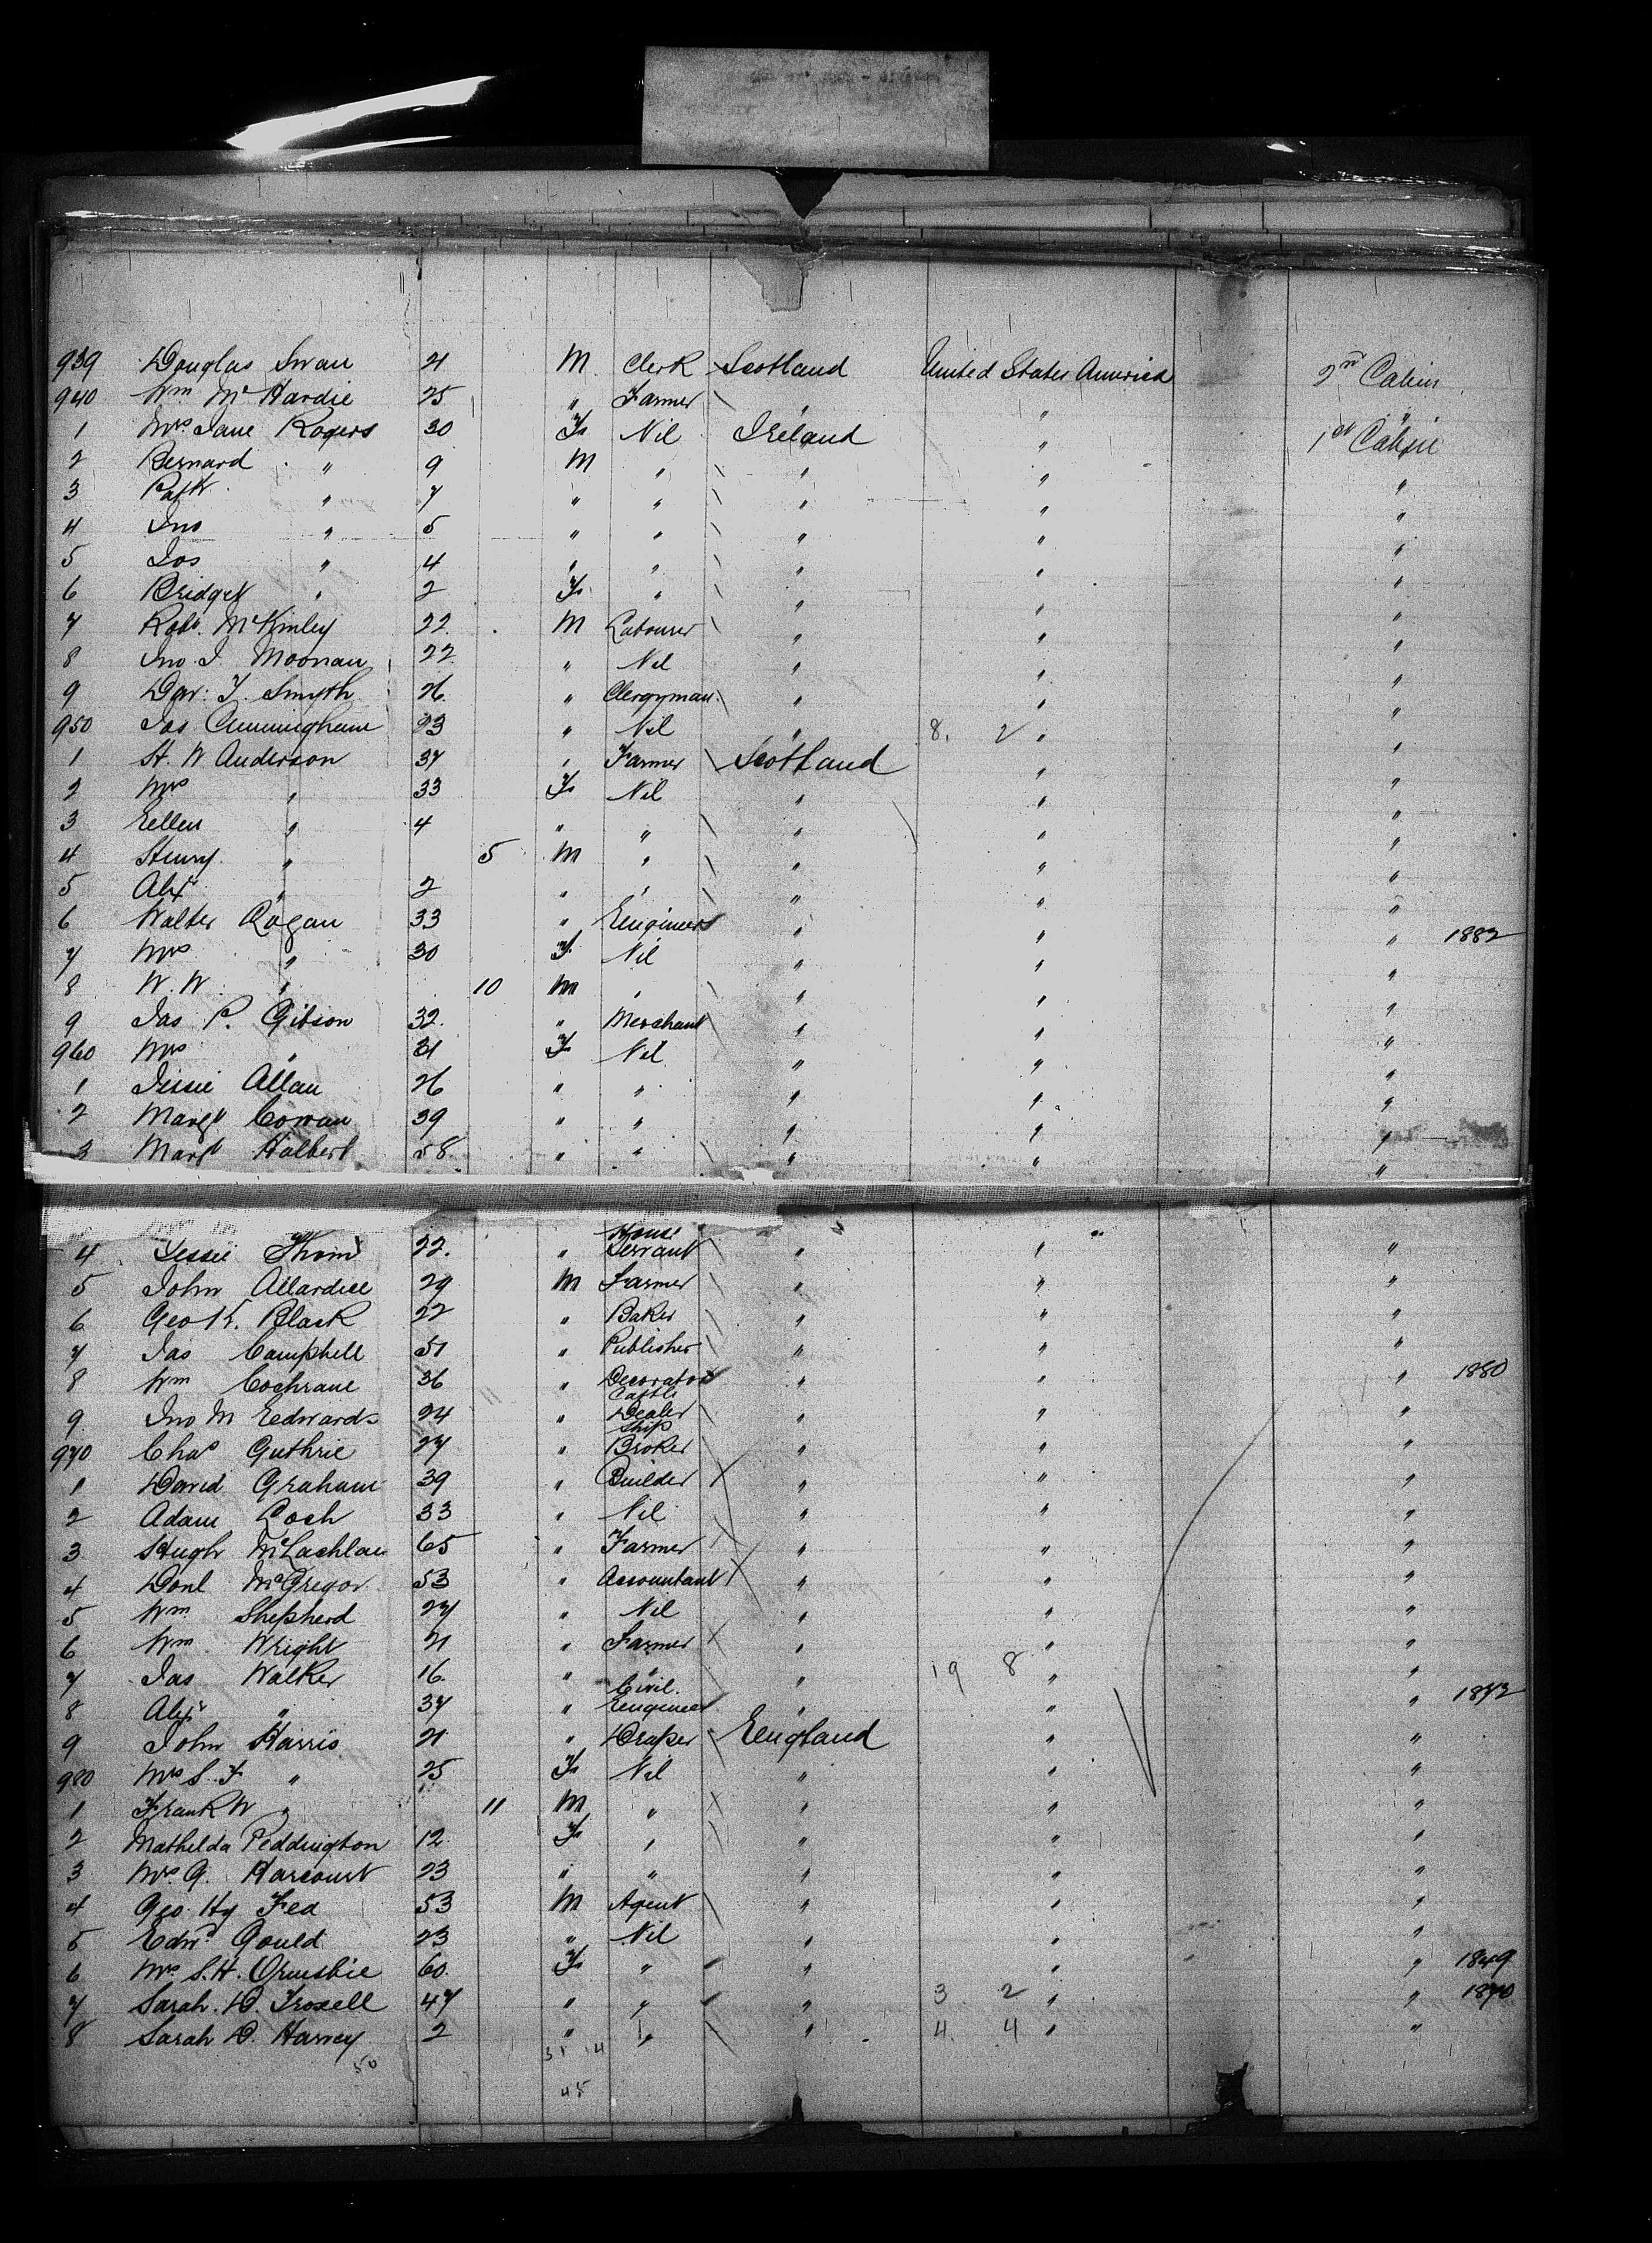 939 Douglas Swan 21 M Clerk Scotland United States America 2nd Cabin
940 Wm McHardie 25 " Farmer " " "
1 Mrs Jane Rogers 30 F Nil Ireland " 1st Cabin
2 Bernard " 9 M " " " "
3 Patk " 7 " " " " "
4 Jno " 5 " " " " "
5 Jos " 4 " " " " "
6 Bridget " 2 F " " " "
7 Robt. McKinley 22 M Labourer " " "
8 Jno. J. Moonan 22 " Nil " " "
9 Dav: T. Smyth 26 " Clergyman " " "
950 Jas Cunningham 23 " Nil " 8. 2 " "
1 H. W Anderson 37 " Farmer Scotland " "
2 Mrs " 33 F Nil " " "
3 Ellen " 4 " " " " "
4 Henry " 5 M " " " "
5 Alex " 2 " " " " "
6 Walter Logan 33 " Engineer " " " 1882
7 Mrs " 30 F Nil " " "
8 W. W. " 10 M " " " "
9 Jas P. Gibson 32 " Merchant " " "
960 Mrs " 31 F Nil " " "
1 Jessie Allan 26 " " " " "
2 Margt Cowan 39 " " " " "
3 Margt Halbert 58 " " " " "
4 Jessie Thom 22 " House Servant " " "
5 John Allardice 29 M Farmer " " "
6 Geo K. Black 22 " Baker " " "
7 Jas Campbell 51 " Publisher " " "
8 Wm Cochrane 36 " Decorator " " " 1880
9 Jno M Edwards 24 " Cattle Dealer " " "
970 Chas Guthrie 27 " Ship Broker " " "
1 David Graham 39 " Builder " " "
2 Adam Loch 33 " Nil " " "
3 Hugh McLachlan 65 " Farmer " " "
4 Donl McGregor 53 " Accountant " " "
5 Wm Shepherd 27 " Nil " " "
6 Wm Wright 21 " Farmer " " "
7 Jas Walker 16 " " " 19 8 " "
8 Alexr " 37 " Civil Engineer " " " 1872
9 John Harris 21 " Draper England " "
980 Mrs S. F " 25 F Nil " " "
1 Frank W " 11 M " " " "
2 Mathilda Peddington 12 F " " " "
3 Mrs G. Harcourt 23 " " " " "
4 Geo. Hy Fea 53 M Agent " " "
5 Edwd Gould 23 " Nil " " "
6 Mrs S. H. Ormsbie 60 F " " " " 1849
7 Sarah. D. Troxell 47 " " " 3 2 " " 1870
8 Sarah D. Harvey 2 " " " 4 4 " "
50 31 14
45